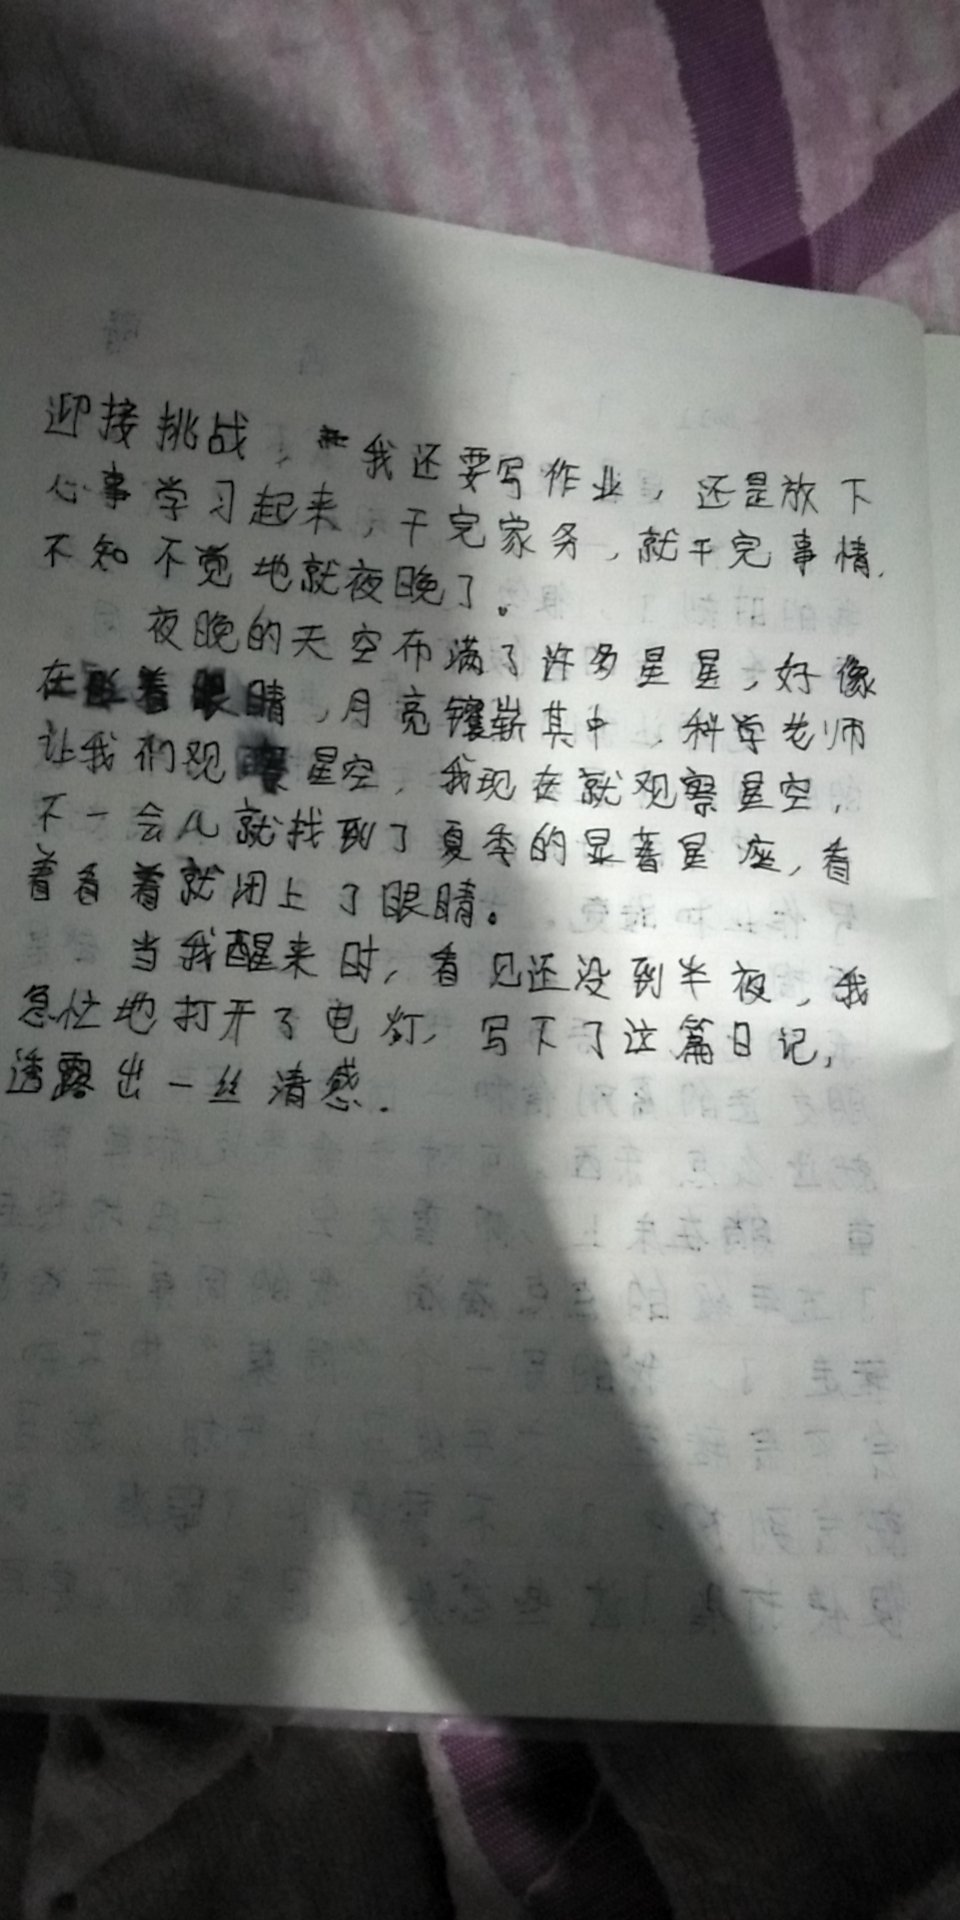 迎接挑战，我还要写作业，还是放下
心事学习起来，干完家务，就干完事情，
不知不觉地就夜晚了。
夜晚的天空布满了许多星星，好像
在眨着眼睛，月亮镶崭其中、科学老师
让我们观察星空，我现在就观察星空，
不一会儿就找到了夏季的显著星座，看
着看着就闭上了眼睛。
当我醒来时，看见还没到半夜，我
急忙地打开了电灯，写下了这篇日记，
透露出一丝清感.